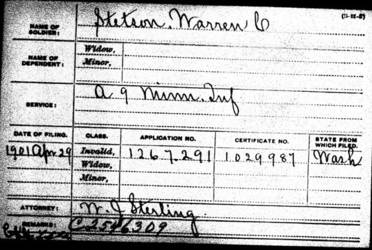 (3-15-5)
NAME OF SOLDIER: Stetson, Warren C
NAME OF DEPENDENT: Widow,
Minor,
SERVICE: A 9 Minn. Inf
DATE OF FILING. CLASS. APPLICATION NO. CERTIFICATE NO. STATE FROM WHICH FILED.
1901 Apr 29 Invalid, 1267.291 1029987 Wash
Widow,
Minor,
ATTORNEY: W. J. Sterling.
REMARKS: C 2546309